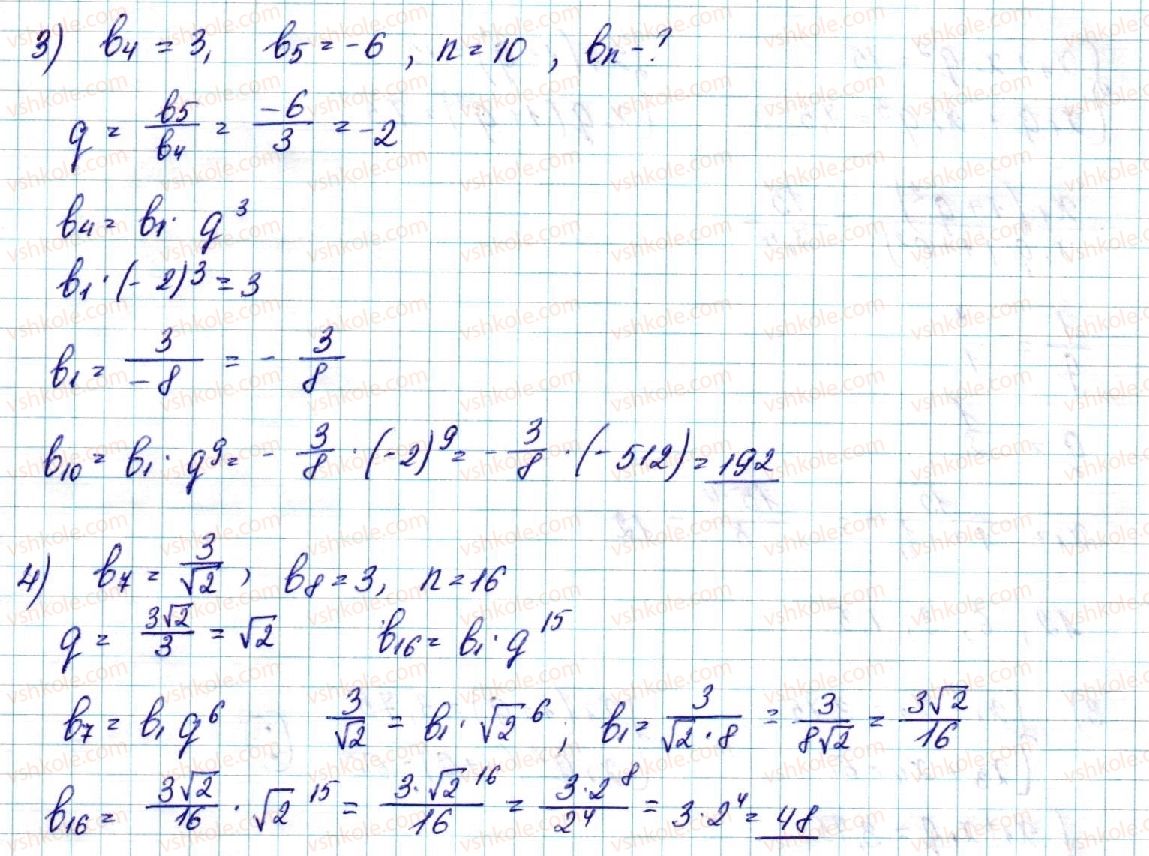 3) b₄ = 3, b₅ = -6, n = 10, bₙ - ?
q = b₅/b₄ = -6/3 = -2
b₄ = b₁ · q³
b₁ · (-2)³ = 3
b₁ = 3/-8 = - 3/8
b₁₀ = b₁ · q⁹ = - 3/8 · (-2)⁹ = - 3/8 · (-512) = 192
4) b₇ = 3/√2, b₈ = 3, n = 16
q = 3√2/3 = √2 b₁₆ = b₁ · q¹⁵
b₇ = b₁ q⁶ 3/√2 = b₁ · √2⁶; b₁ = 3/√2·8 = 3/8√2 = 3√2/16
b₁₆ = 3√2/16 · √2¹⁵ = 3·√2¹⁶/16 = 3·2⁸/2⁴ = 3·2⁴ = 48
vshkole.com